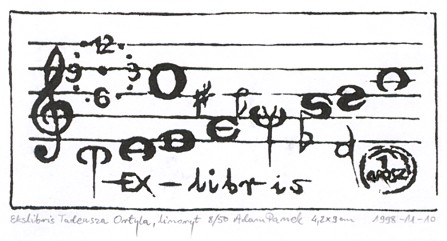 12
9 3
6
O
TADEUSZA
EX-libris
1
GROSZ
Ekslibris Tadeusza Ortyla, linoryt 8/50 Adam Panek 4,2x9cm 1998-11-10